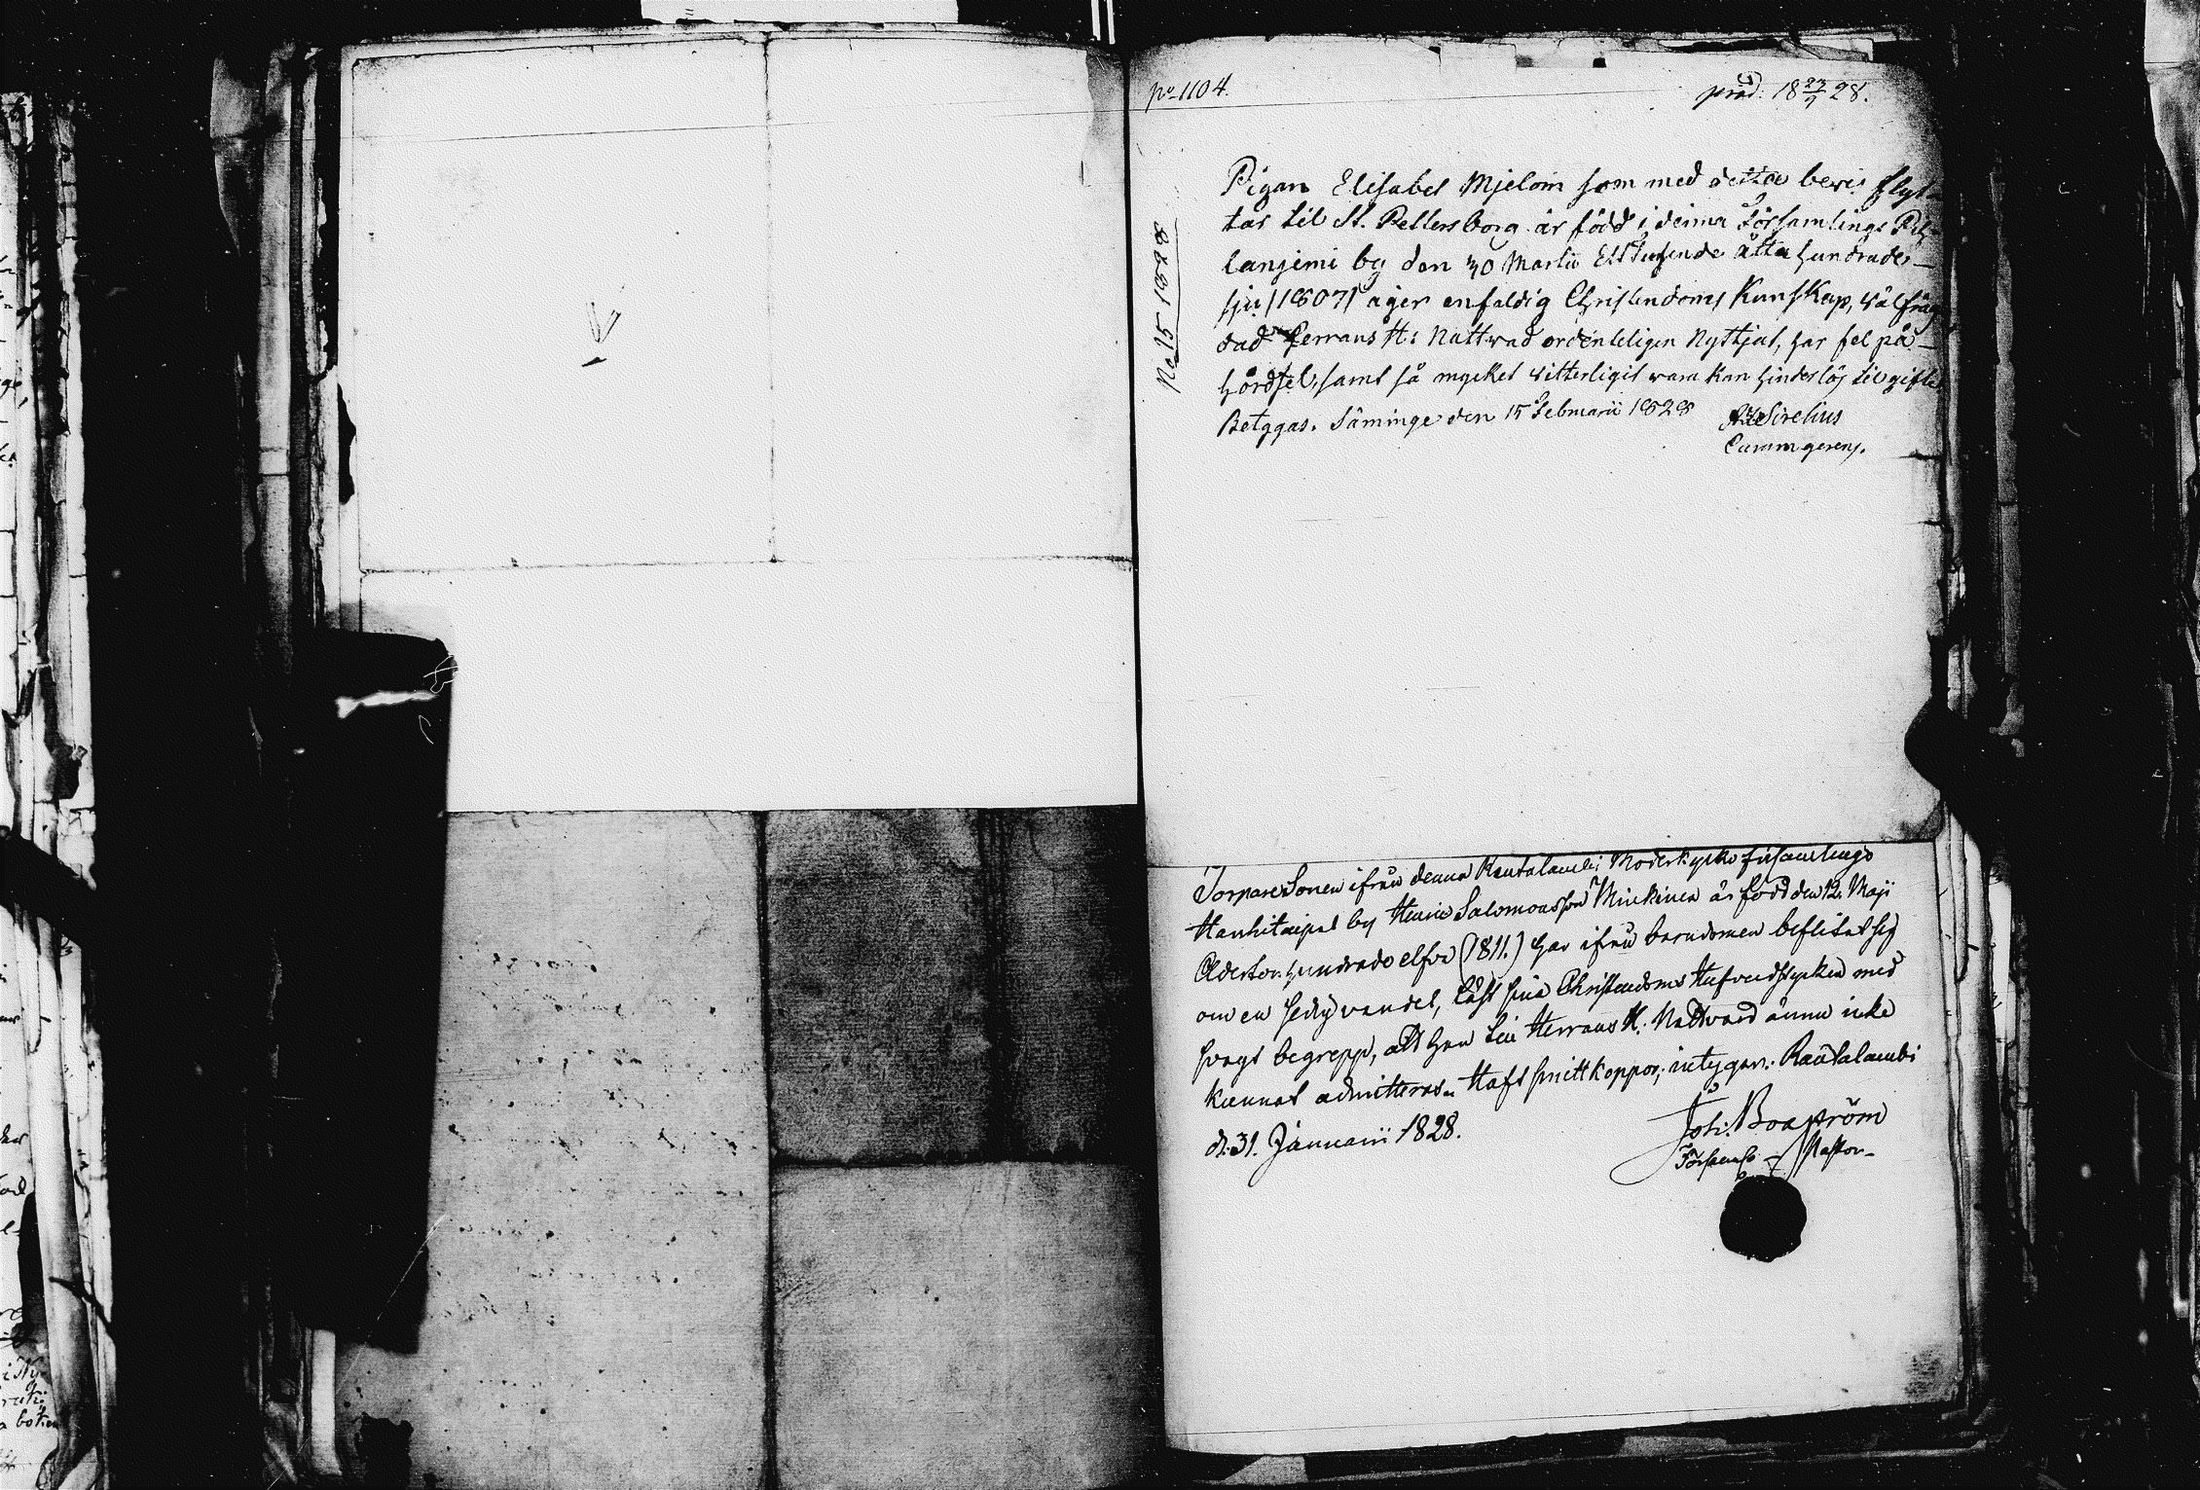 pr 1104.
præs. 18 27/9 28.
No 15 1828
Pigan Elisabet Mjeloin som med detta bevis flyt-
tar til St. Pettersborg är född i denna Församlings Pih-
lanjemi by den 30 Martii Ett tusende åtta hundrade
sju (1807) äger enfaldig Christendoms Kunskap, välfräg-
dad Herrans H: Nattvard ordenteligen Nyttjat, har fel på
hördsel, samt så mycket vitterligit vara kan hinderlös til gifte
Betygas. Säminge den 15 Februarii 1828
Sirelius
Curam gerens.
Torpare Sonen ifrån denna Rautalambi Moderkyrko församlings
Hanhitaipal by Henric Salomonsson Minkinen är född den 12. Maji
Adertonhundrade elfva (1811.) har ifrån barndomen beflitat sig
om en sedig vandel, läst sina Christendoms Hufvudstycken med
svagt begrepp, att han till Herrans H. Nattvard ännu icke
kunnat admitteras. Haft smittkoppor; intygar. Rautalambi
d. 31. Januarii 1828.
Joh. Boström
Pastor